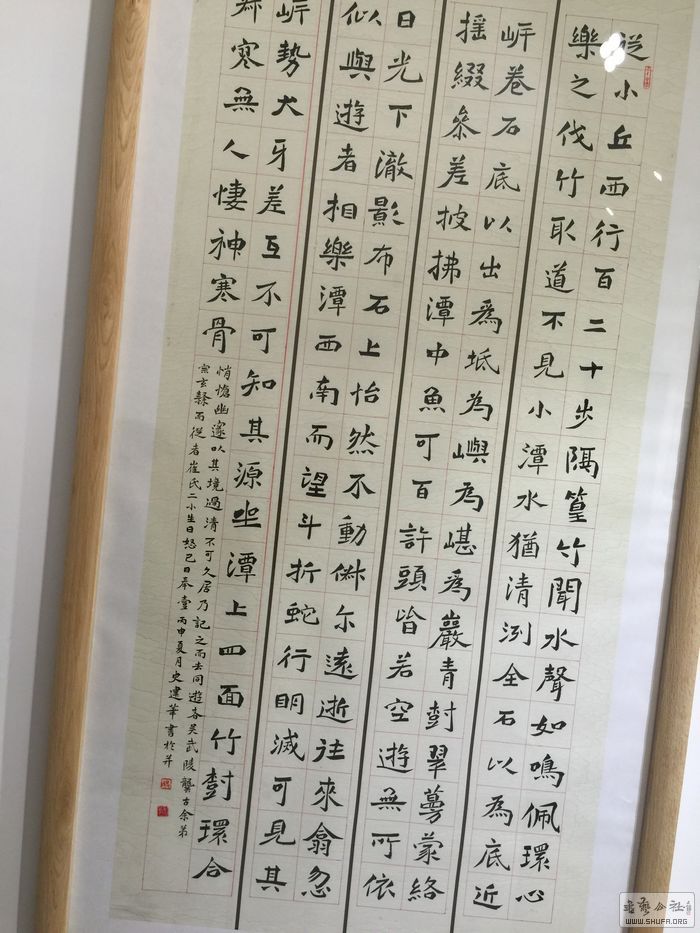 從小丘西行百二十步隔篁竹聞水聲如鳴佩環心
樂之伐竹取道不見小潭水猶清洌全石以為底近
岸卷石底以出為坻為嶼為嵁為巖青樹翠蔓蒙絡
搖綴參差披拂潭中魚可百許頭皆若空遊無所依
日光下澈影布石上怡然不動俶尔遠逝往來翕忽
似與遊者相樂潭西南而望斗折蛇行明滅可見其
岸勢犬牙差互不可知其源坐潭上四面竹樹環合
寂寥無人悽神寒骨
悄愴幽邃以其境過清不可久居乃記之而去同遊者吳武陵龔古余弟
宗玄隸而從者崔氏二小生曰恕己曰奉壹丙申夏月史建華書於并
書藝公社
WWW.SHUFA.ORG